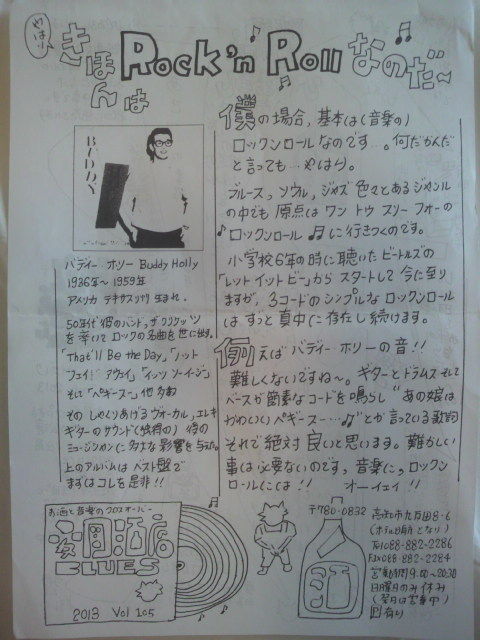 やはり
きほんは Rock'n Roll なのだ~
BUDDY
バディー・ホリー Buddy Holly
1936年~1959年
アメリカ テキサス 生まれ.
50年代 彼のバンド,ザ クリケッツ
を率いて ロックの名曲を世に出す.
「That'll Be the Day」「ノット
フェイド アウェイ」「イッツ ソー イージー」
そして「ペギースー」他多数
その しゃくりあげるヴォーカル,エレキ
ギターのサウンド(独特の) 後の
ミュージシャンに多大な影響を与えた.
上のアルバムは ベスト盤で
まずはコレを是非!!
僕の場合,基本はく(音楽の)
ロックンロールなのです…。何だかんだ
と言っても…やはり。
ブルース,ソウル,ジャズ 色々とあるジャンル
の中でも 原点は ワン トゥ スリー フォーの
ロックンロールに行きつくのです。
小学校6年の時に聴いた ビートルズの
「レット イット ビー」から スタートして 今に至り
ますが,3コードのシンプルな ロックンロール
は ずっと真中に存在し続けます。
例えば バディー・ホリーの音!!
難しくないですね~。ギターとドラムス そして
ベースが簡素なコードを鳴らし "あの娘は
かわいい ペギースー…"とか言っている歌詞
それで絶対良いと思います。難しい
事は必要ないのです,音楽に,ロックン
ロールには!! オーイェイ!!
お酒と音楽のクロスオーバー
BLUES
2013 Vol 105
酒
〒780-0832
高知市九反田8-6
Tel 088-882-2286
Fax 088-882-2284
営業時間 9:00~20:30
日曜日のみ休み
(翌月は営業中)
P有り